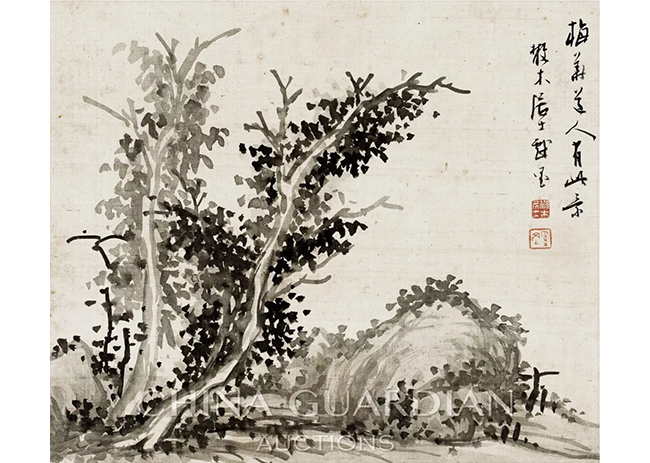 梅華道人有此景
散木居士戲墨
CHINA GUARDIAN
AUCTIONS